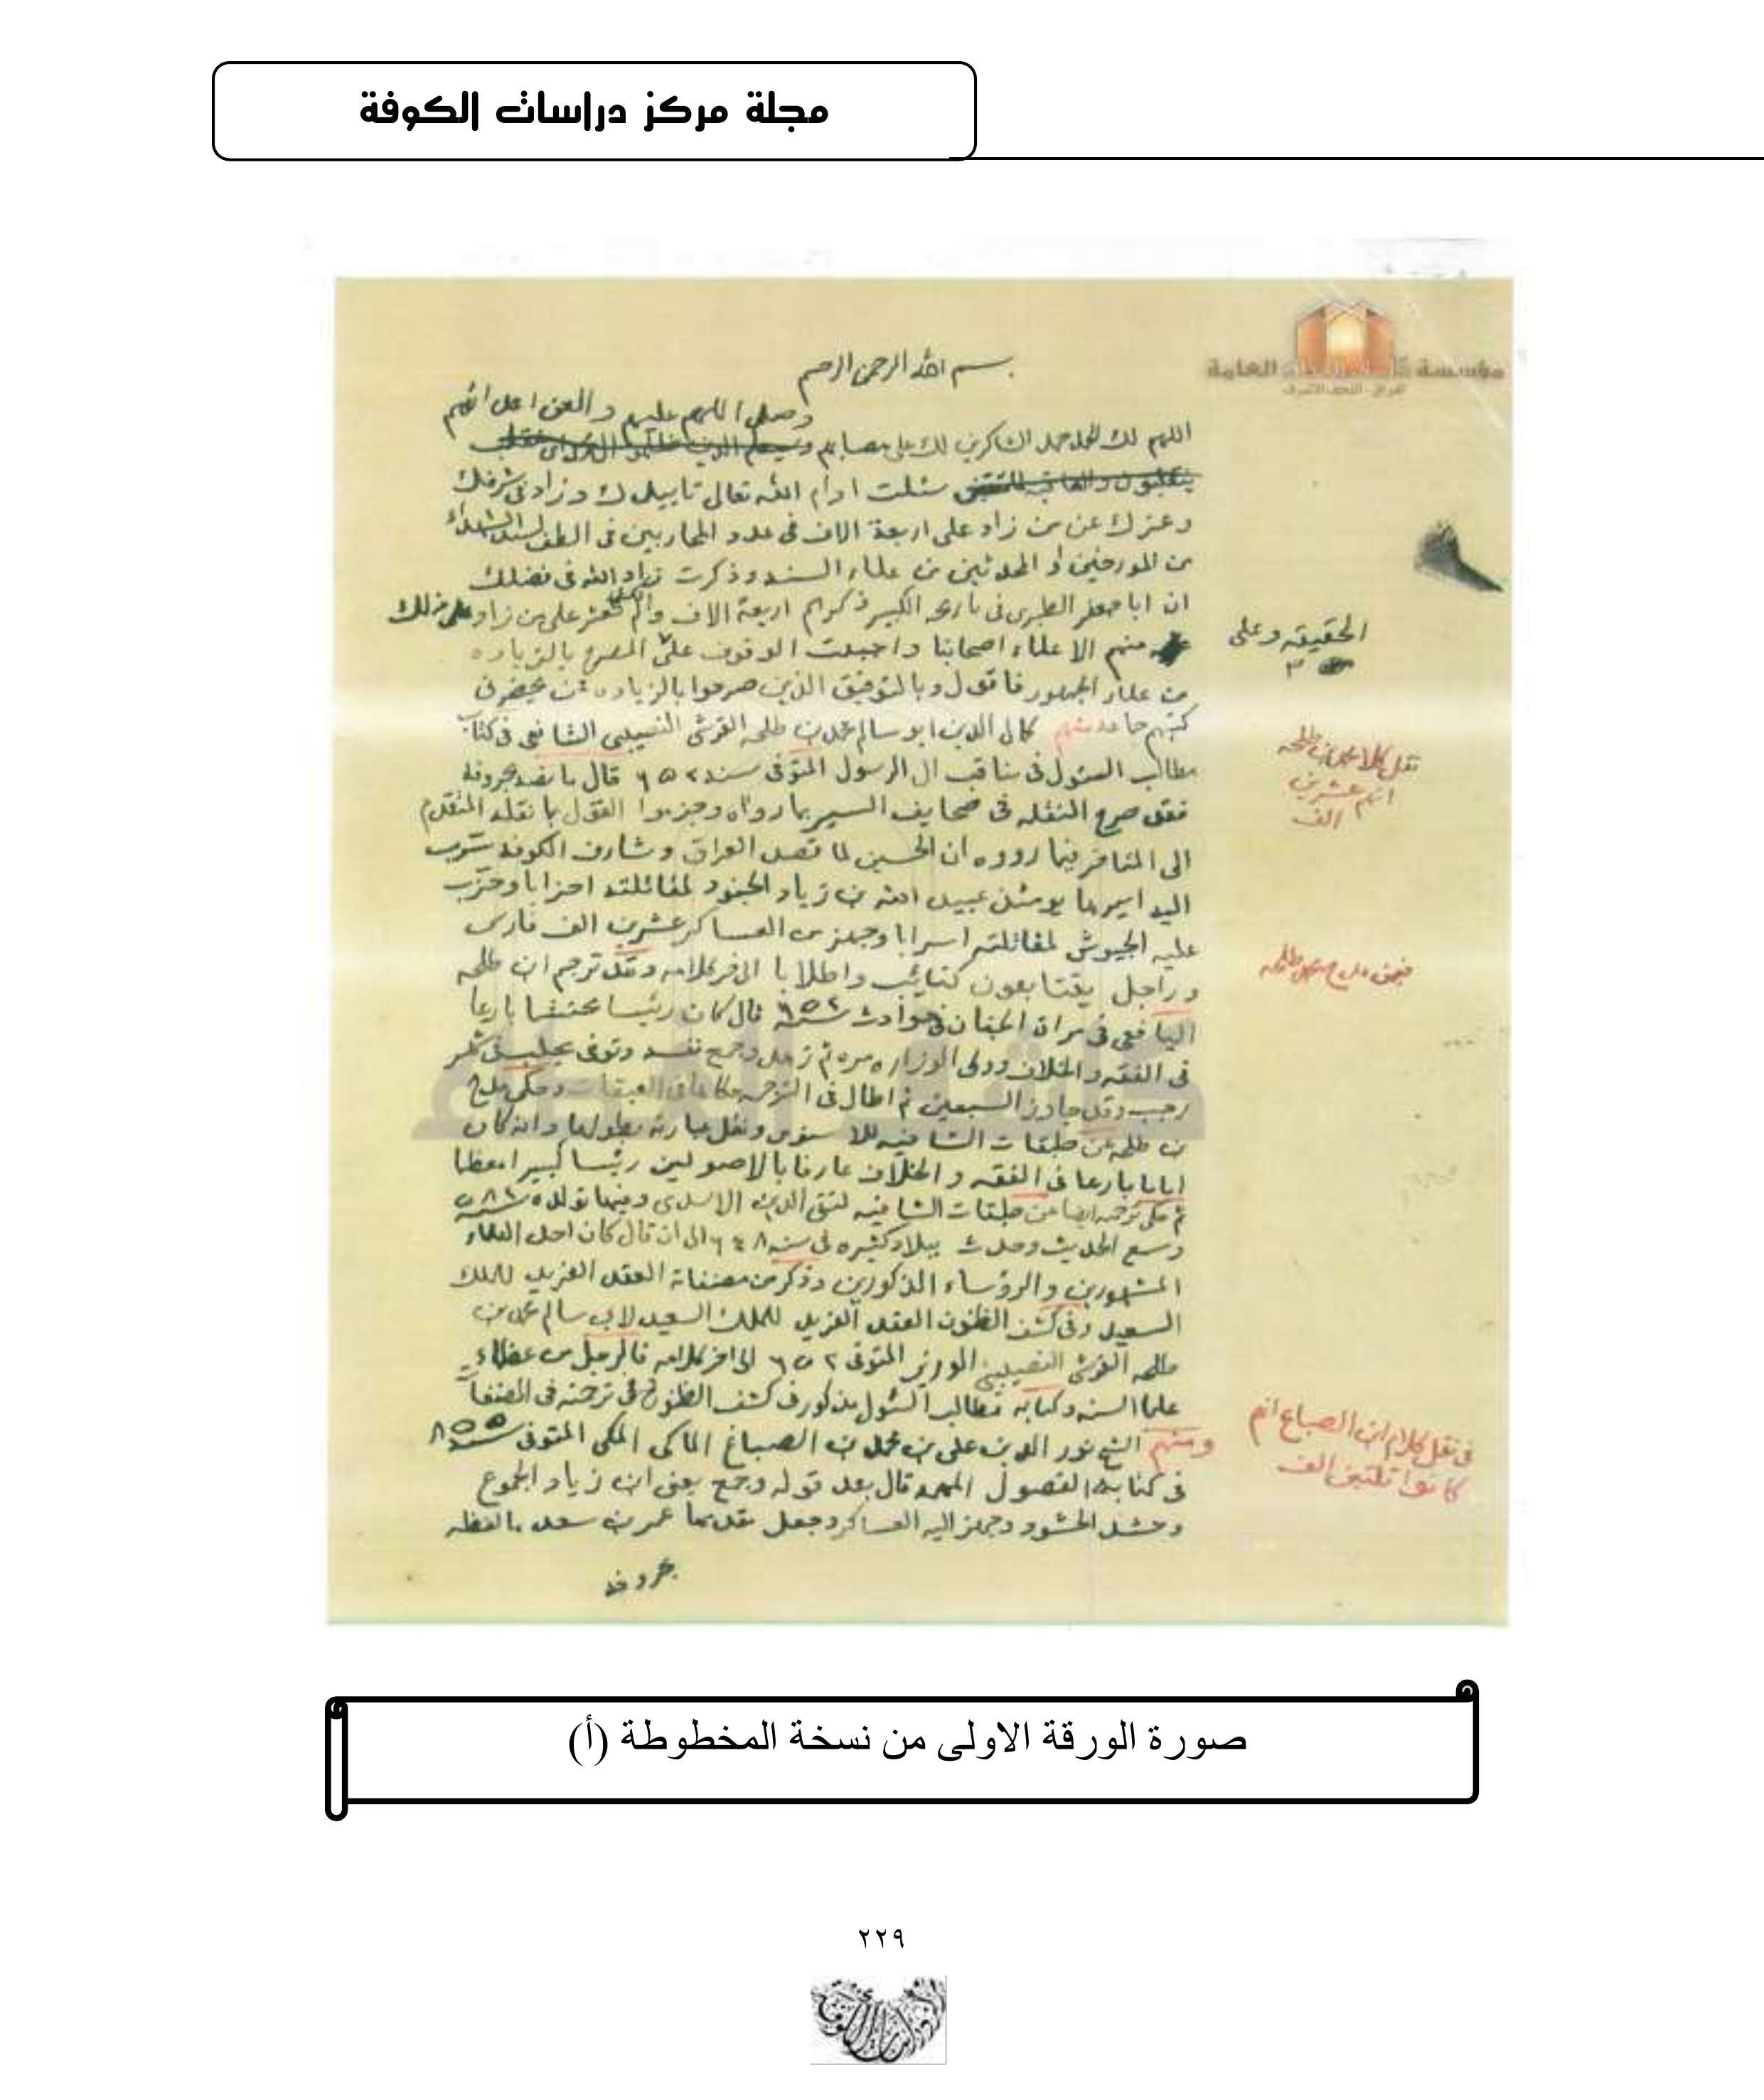 مجلة مركز دراسات الكوفة
مؤسسة كاشف الغطاء العامة
العراق - النجف الاشرف
بسم الله الرحمن الرحيم
وصلى اللهم عليهم والعن اعدائهم
اللهم لك الحمد حمد الشاكرين لك على مصابهم
سئلت ادام الله تعالى تاييدك وزاد في شرفك
وعزك عن من زاد على اربعة الاف في عدد المحاربين في الطف لسيد الشهداء
من المورخين او المحدثين من علماء السنه وذكرت زاد الله في فضلك
ان ابا جعفر الطبري في تاريخه الكبير ذكرهم اربعة الاف ولم تعثر على من زاد على ذلك
منهم الا علماء اصحابنا واحببت الوقوف على المصرح بالزياده
من علماء الجمهور فاقول وبالتوفيق الذين صرحوا بالزياده عمن يحضرني
كتبهم جماعة منهم كمال الدين ابو سالم محمد بن طلحه القرشي النصيبي الشافعي في كتابه
مطالب السئول في مناقب ال الرسول المتوفى سنه ٦٥٢ قال ما نصه بحروفه
فقد صرح النقله في صحايف السير بما رواه وجزموا القول بما نقله المتقدم
الى المتاخر فيما رووه ان الحسين لما قصد العراق وشارف الكوفه سرب
اليه اميرها يومئذ عبيد الله بن زياد الجنود لمقاتلته احزابا وحزب
عليه الجيوش لمقاتلته اسرابا وجهز من العساكر عشرين الف فارس
وراجل يتتابعون كتائب واطلابا الى اخر كلامه وقد ترجم ابن طلحه
اليافعي في مراة الجنان في حوادث سنة ٦٥٢ قال كان رئيسا محتشما بارعا
في الفقه والخلاف وولى الوزاره مره ثم زهد وجمع نفسه وتوفى بحلب في شهر
رجب وقد جاوز السبعين ثم اطال في الترجمه حكاها في العبقات وحكى مدح
بن طلحه عن طبقات الشافيه للاسنوي ونقل عبارته بطولها وانه كان
اماما بارعا في الفقه والخلاف عارفا بالاصولين رئيسا كبيرا معظما
ثم حكى ترجمته ايضا من طبقات الشافيه لتقي الدين الاسدي وفيها تولده سنة ٥٨٢
وسمع الحديث وحدث ببلاد كثيره في سنه ٦٤٨ الى ان قال كان احد العلماء
المشهورين والرؤساء المذكورين وذكر من مصنفاته العقد الفريد للملك
السعيد وفي كشف الظنون العقد الفريد للملك السعيد لابي سالم محمد بن
طلحه القرشي النصيبي الوزير المتوفى ٦٥٢ الى اخر كلامه فالرجل من عظماء
علماء السنه وكتابه مطالب السئول مذكور في كشف الظنون في ترجمته في المصنفات
ومنهم الشيخ نور الدين علي بن محمد بن الصباغ المالكي المكي المتوفى سنه ٨٥٥
في كتابه الفصول المهمه قال بعد قوله وجمع يعني ابن زياد الجموع
وحشد الحشود وجهز اليه العساكر وجعل مقدمها عمر بن سعد ما لفظه
بحروفه
الحقيقه وعلى
٣
نقل كلام محمد بن طلحه
انهم عشرين
الف
في نقل كلام ابن الصباغ انهم
كانوا ثلثين الف
صورة الورقة الاولى من نسخة المخطوطة (أ)
٢٢٩